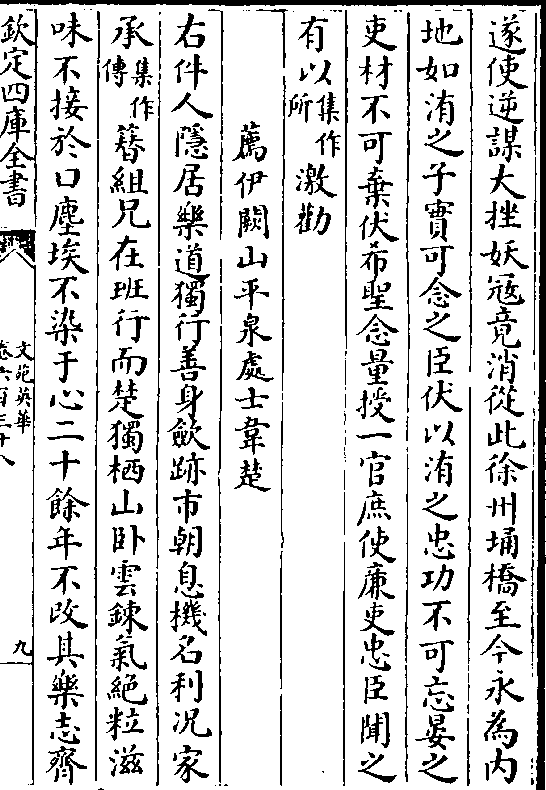 遂使逆謀大挫妖寇竟消從此徐州埇橋至今永為内
地如洧之子實可念之臣伏以洧之忠功不可忘晏之
吏材不可棄伏希聖念量授一官庶使廉吏忠臣聞之
有以集作所激勸
薦伊闕山平泉處士韋楚
右件人隱居樂道獨行善身斂跡市朝息機名利况家
承集作傳簪組兄在班行而楚獨栖山卧雲鍊氣絶粒滋
味不接於口塵埃不染于心二十餘年不改其樂志齊
欽定四庫全書
文苑英華
卷六百三十八
九